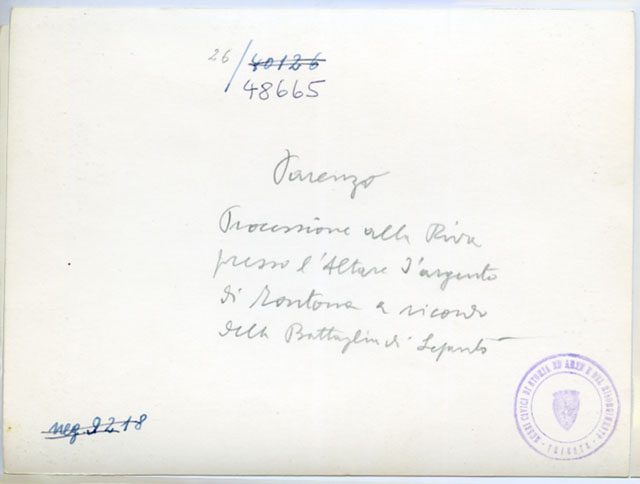 26/40126
48665
Parenzo
Processione alla Riva
presso l'Altare d'argento
di Montona a ricordo
della Battaglia di Lepanto
neg 2218
MUSEI CIVICI DI STORIA ED ARTE E DEL RISORGIMENTO
TRIESTE